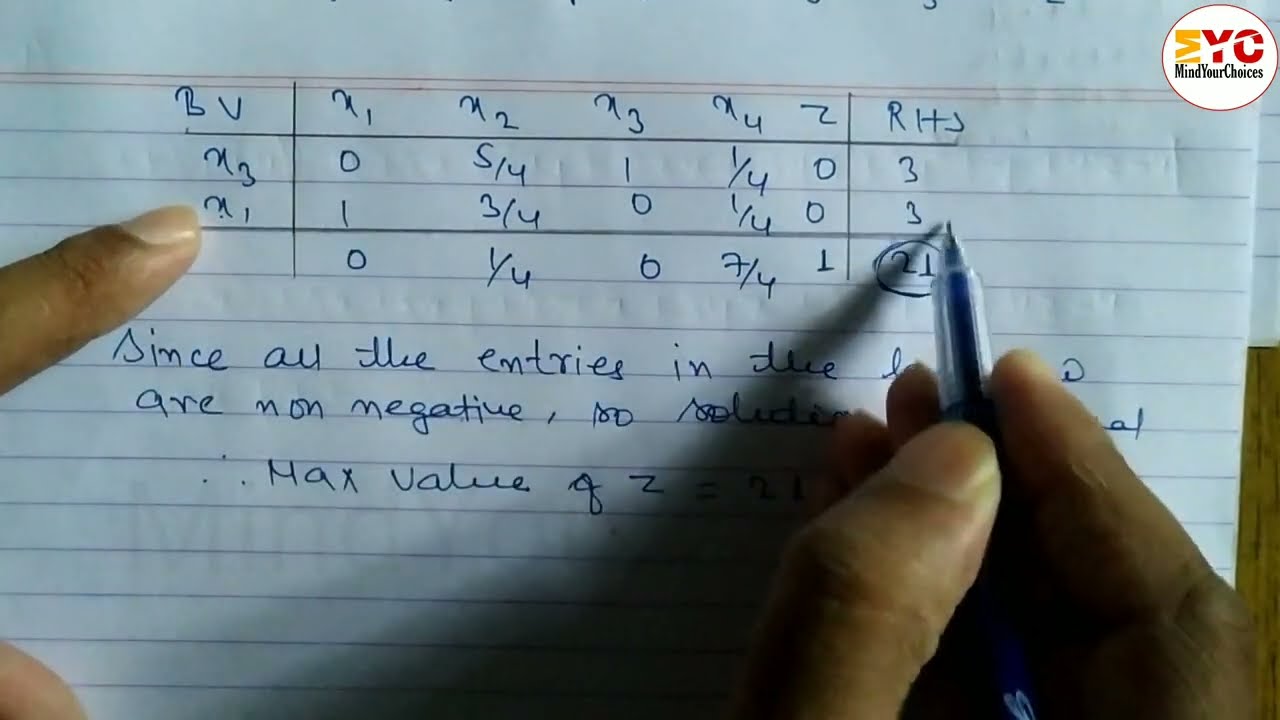 MYC
MindYourChoices
BV x1 x2 x3 x4 Z RHS
x3 0 5/4 1 1/4 0 3
x1 1 3/4 0 1/4 0 3
0 1/4 0 7/4 1 21
Since all the entries in the
are non negative, so
∴ Max value of Z = 21